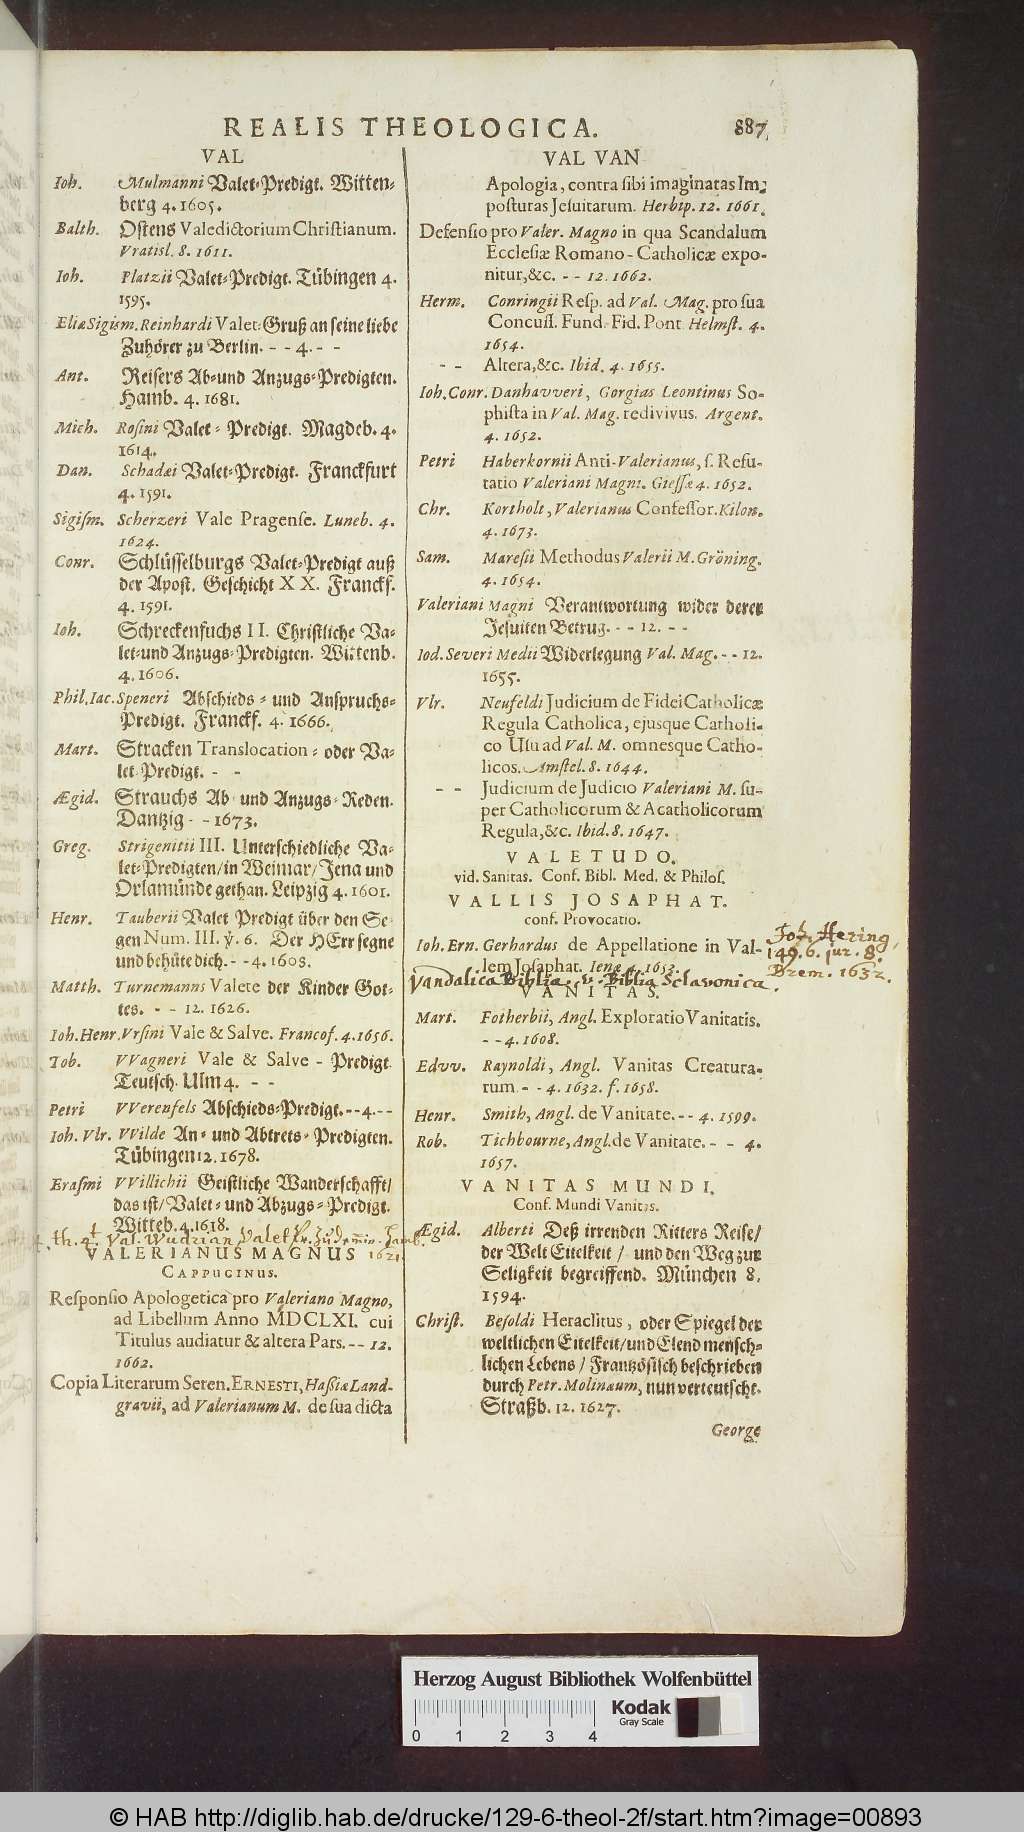 REALIS THEOLOGICA. 887
VAL
Ioh. Mulmanni Valet-Predigt. Witten-
berg 4. 1605.
Balth. Ostens Valedictorium Christianum.
Vratisl. 8. 1611.
Ioh. Platzii Valet-Predigt. Tübingen 4.
1595.
Eliæ Sigism. Reinhardi Valet-Gruß an seine liebe
Zuhörer zu Berlin. - - 4. - -
Ant. Reisers Ab- und Anzugs-Predigten.
Hamb. 4. 1681.
Mich. Rosini Valet-Predigt. Magdeb. 4.
1614.
Dan. Schadæi Valet-Predigt. Franckfurt
4. 1591.
Sigism. Scherzeri Vale Pragense. Luneb. 4.
1624.
Conr. Schlüsselburgs Valet-Predigt auß
der Apost. Geschicht XX. Franckf.
4. 1591.
Ioh. Schreckenfuchs II. Christliche Va-
let- und Anzugs-Predigten. Wittenb.
4. 1606.
Phil. Iac. Speneri Abschieds- und Anspruchs-
Predigt. Franckf. 4. 1666.
Mart. Stracken Translocation- oder Va-
let Predigt. - -
Ægid. Strauchs Ab- und Anzugs-Reden.
Dantzig - - 1673.
Greg. Strigenitii III. Unterschiedliche Va-
let-Predigten/in Weimar/Jena und
Orlamünde gethan. Leipzig 4. 1601.
Henr. Tauberii Valet Predigt über den Se-
gen Num. III. ỹ. 6. Der HErr segne
und behüte dich. - - 4. 1608.
Matth. Turnemanns Valete der Kinder Got-
tes. - - 12. 1626.
Ioh. Henr. Vrsini Vale & Salve. Francof. 4. 1656.
Tob. VVagneri Vale & Salve - Predigt
Teutsch. Ulm 4. - -
Petri VVerenfels Abschieds-Predigt. - - 4. - -
Ioh. Vlr. VVilde An- und Abtrets-Predigten.
Tübingen 12. 1678.
Erasmi VVillichii Geistliche Wanderschafft/
das ist/Valet- und Abzugs-Predigt.
Witteb. 4. 1618.
th. 4. Val. Wudrian Valet Pr. Hamb. 1621.
VALERIANUS MAGNUS
CAPPUCINUS.
Responsio Apologetica pro Valeriano Magno,
ad Libellum Anno MDCLXI. cui
Titulus audiatur & altera Pars. - - 12.
1662.
Copia Literarum Seren. ERNESTI, Hassiæ Land-
gravii, ad Valerianum M. de sua dicta
VAL VAN
Apologia, contra sibi imaginatas Im-
posturas Jesuitarum. Herbip. 12. 1661.
Defensio pro Valer. Magno in qua Scandalum
Ecclesiæ Romano-Catholicæ expo-
nitur, &c. - - 12. 1662.
Herm. Conringii Resp. ad Val. Mag. pro sua
Concuss. Fund. Fid. Pont. Helmst. 4.
1654.
- - Altera, &c. Ibid. 4. 1655.
Ioh. Conr. Danhavveri, Gorgias Leontinus So-
phista in Val. Mag. redivivus. Argent.
4. 1652.
Petri Haberkornii Anti-Valerianus, s. Refu-
tatio Valeriani Magni. Giessæ 4. 1652.
Chr. Kortholt, Valerianus Confessor. Kilon.
4. 1673.
Sam. Maresii Methodus Valerii M. Gröning.
4. 1654.
Valeriani Magni Verantwortung wider derer
Jesuiten Betrug. - - 12. - -
Iod. Severi Medii Widerlegung Val. Mag. - - 12.
1655.
Vlr. Neufeldi Judicium de Fidei Catholicæ
Regula Catholica, ejusque Catholi-
co Usu ad Val. M. omnesque Catho-
licos. Amstel. 8. 1644.
- - Judicium de Judicio Valeriani M. su-
per Catholicorum & Acatholicorum
Regula, &c. Ibid. 8. 1647.
VALETUDO.
vid. Sanitas. Conf. Bibl. Med. & Philos.
VALLIS JOSAPHAT.
conf. Provocatio.
Ioh. Ern. Gerhardus de Appellatione in Val-
lem Josaphat. Ienæ 4. 1653.
Joh. Hering,
149. 6. jur. 8.
Brem. 1632.
Vandalica Biblia. v. Biblia Sclavonica.
VANITAS.
Mart. Fotherbii, Angl. Exploratio Vanitatis.
- - 4. 1608.
Edvv. Raynoldi, Angl. Vanitas Creatura-
rum - - 4. 1632. f. 1658.
Henr. Smith, Angl. de Vanitate. - - 4. 1599.
Rob. Tichbourne, Angl. de Vanitate. - - 4.
1657.
VANITAS MUNDI.
Conf. Mundi Vanitas.
Ægid. Alberti Deß irrenden Ritters Reise/
der Welt Eitelkeit / und den Weg zur
Seligkeit begreiffend. München 8.
1594.
Christ. Besoldi Heraclitus, oder Spiegel der
weltlichen Eitelkeit/und Elend mensch-
lichen Lebens / Frantzösisch beschrieben
durch Petr. Molinæum, nun verteutscht.
Straßb. 12. 1627.
George
Herzog August Bibliothek Wolfenbüttel
0 1 2 3 4
Kodak
Gray Scale
© HAB http://diglib.hab.de/drucke/129-6-theol-2f/start.htm?image=00893